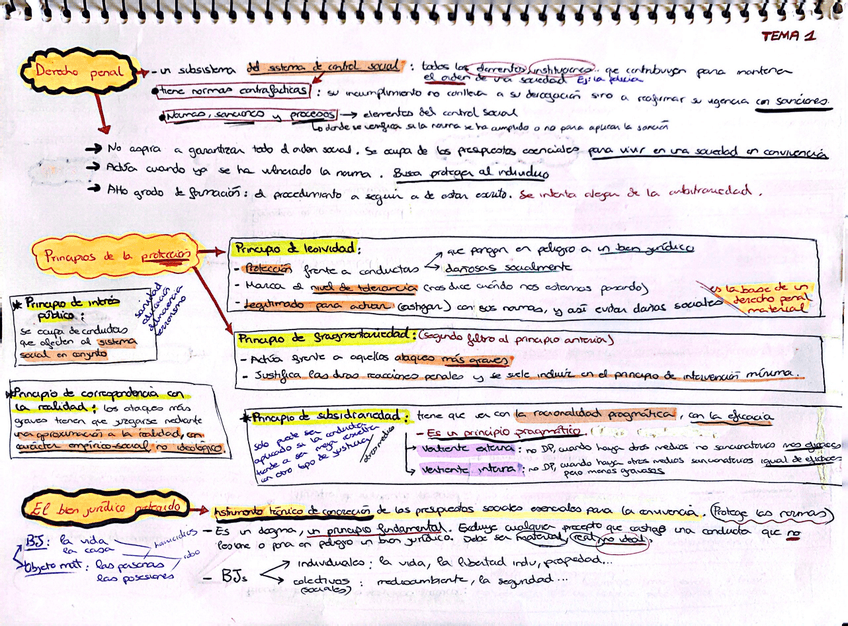 TEMA 1
Derecho penal
- un subsistema del sistema de control social : todos los elementos, instituciones.. que contribuyen para mantener
el orden de una sociedad Ej: la policía
tiene normas contrafácticas : su incumplimiento no conlleva a su derogación sino a reafirmar su vigencia con sanciones.
Normas, sanciones y procesos → elementos del control social
↳ donde se verifica si la norma se ha cumplido o no para aplicar la sanción
→ No aspira a garantizar todo el orden social. Se ocupa de los presupuestos esenciales para vivir en una sociedad en convivencia
→ Actúa cuando ya se ha vulnerado la norma. Busca proteger al individuo
→ Alto grado de formación: el procedimiento a seguir a de estar escrito. Se intenta alejar de la arbitrariedad.
Principios de la protección
Principio de lesividad:
- Protección frente a conductas
que pongan en peligro a un bien jurídico
dañosas socialmente
- Marca el nivel de tolerancia (nos dice cuándo nos estamos pasando)
- Legitimado para actuar (castigar) con sus normas, y así evitar daños sociales
es la base de un
derecho penal
material
* Principio de interés
pública:
se ocupa de conductas
que afecten al sistema
social en conjunto
sanidad
educación
democracia
terrorismo
Principio de fragmentariedad: (segundo filtro al principio anterior)
- Actúa frente a aquellos ataques más graves
- Justifica las duras reacciones penales y se suele incluir en el principio de intervención mínima.
* Principio de correspondencia con
la realidad: los ataques más
graves tienen que juzgarse mediante
una aproximación a la realidad, con
carácter empírico-social no ideológico
* Principio de subsidiariedad: tiene que ver con la racionalidad pragmática, con la eficacia
- Es un principio pragmático
solo puede ser
aplicado si la conducta
en otro tipo de justicia
otros medios
Vertiente externa: no DP, cuando haya otros medios no sancionatorios más eficaces
Vertiente interna: no DP, cuando haya otros medios sancionatorios igual de eficaces
pero menos gravosos
El bien jurídico protegido
Instrumento técnico de concreción de los presupuestos sociales esenciales para la convivencia. (Protege las normas)
- Es un dogma, un principio fundamental. Excluye cualquier precepto que castiga una conducta que no
lesione o pona en peligro un bien jurídico. Debe ser material, real, no ideal.
BJ: la vida
la casa
homicidios
robo
Objeto mat: las personas
las posesiones
- BJs
individuales: la vida, la libertad indiv, propiedad...
colectivos: medioambiente, la seguridad...
(sociales)